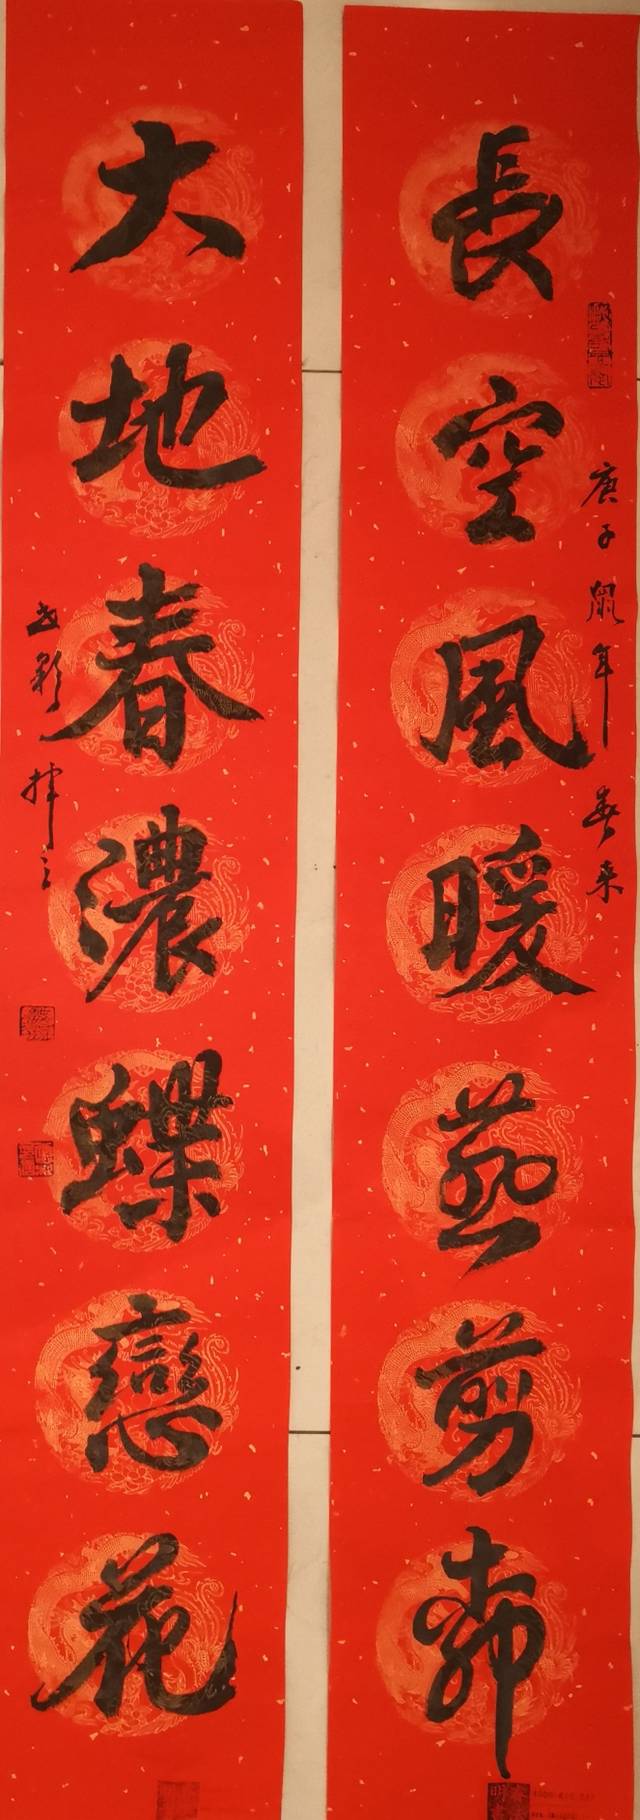 長空風暖燕剪柳
庚子鼠年春來
大地春濃蝶戀花
揮之